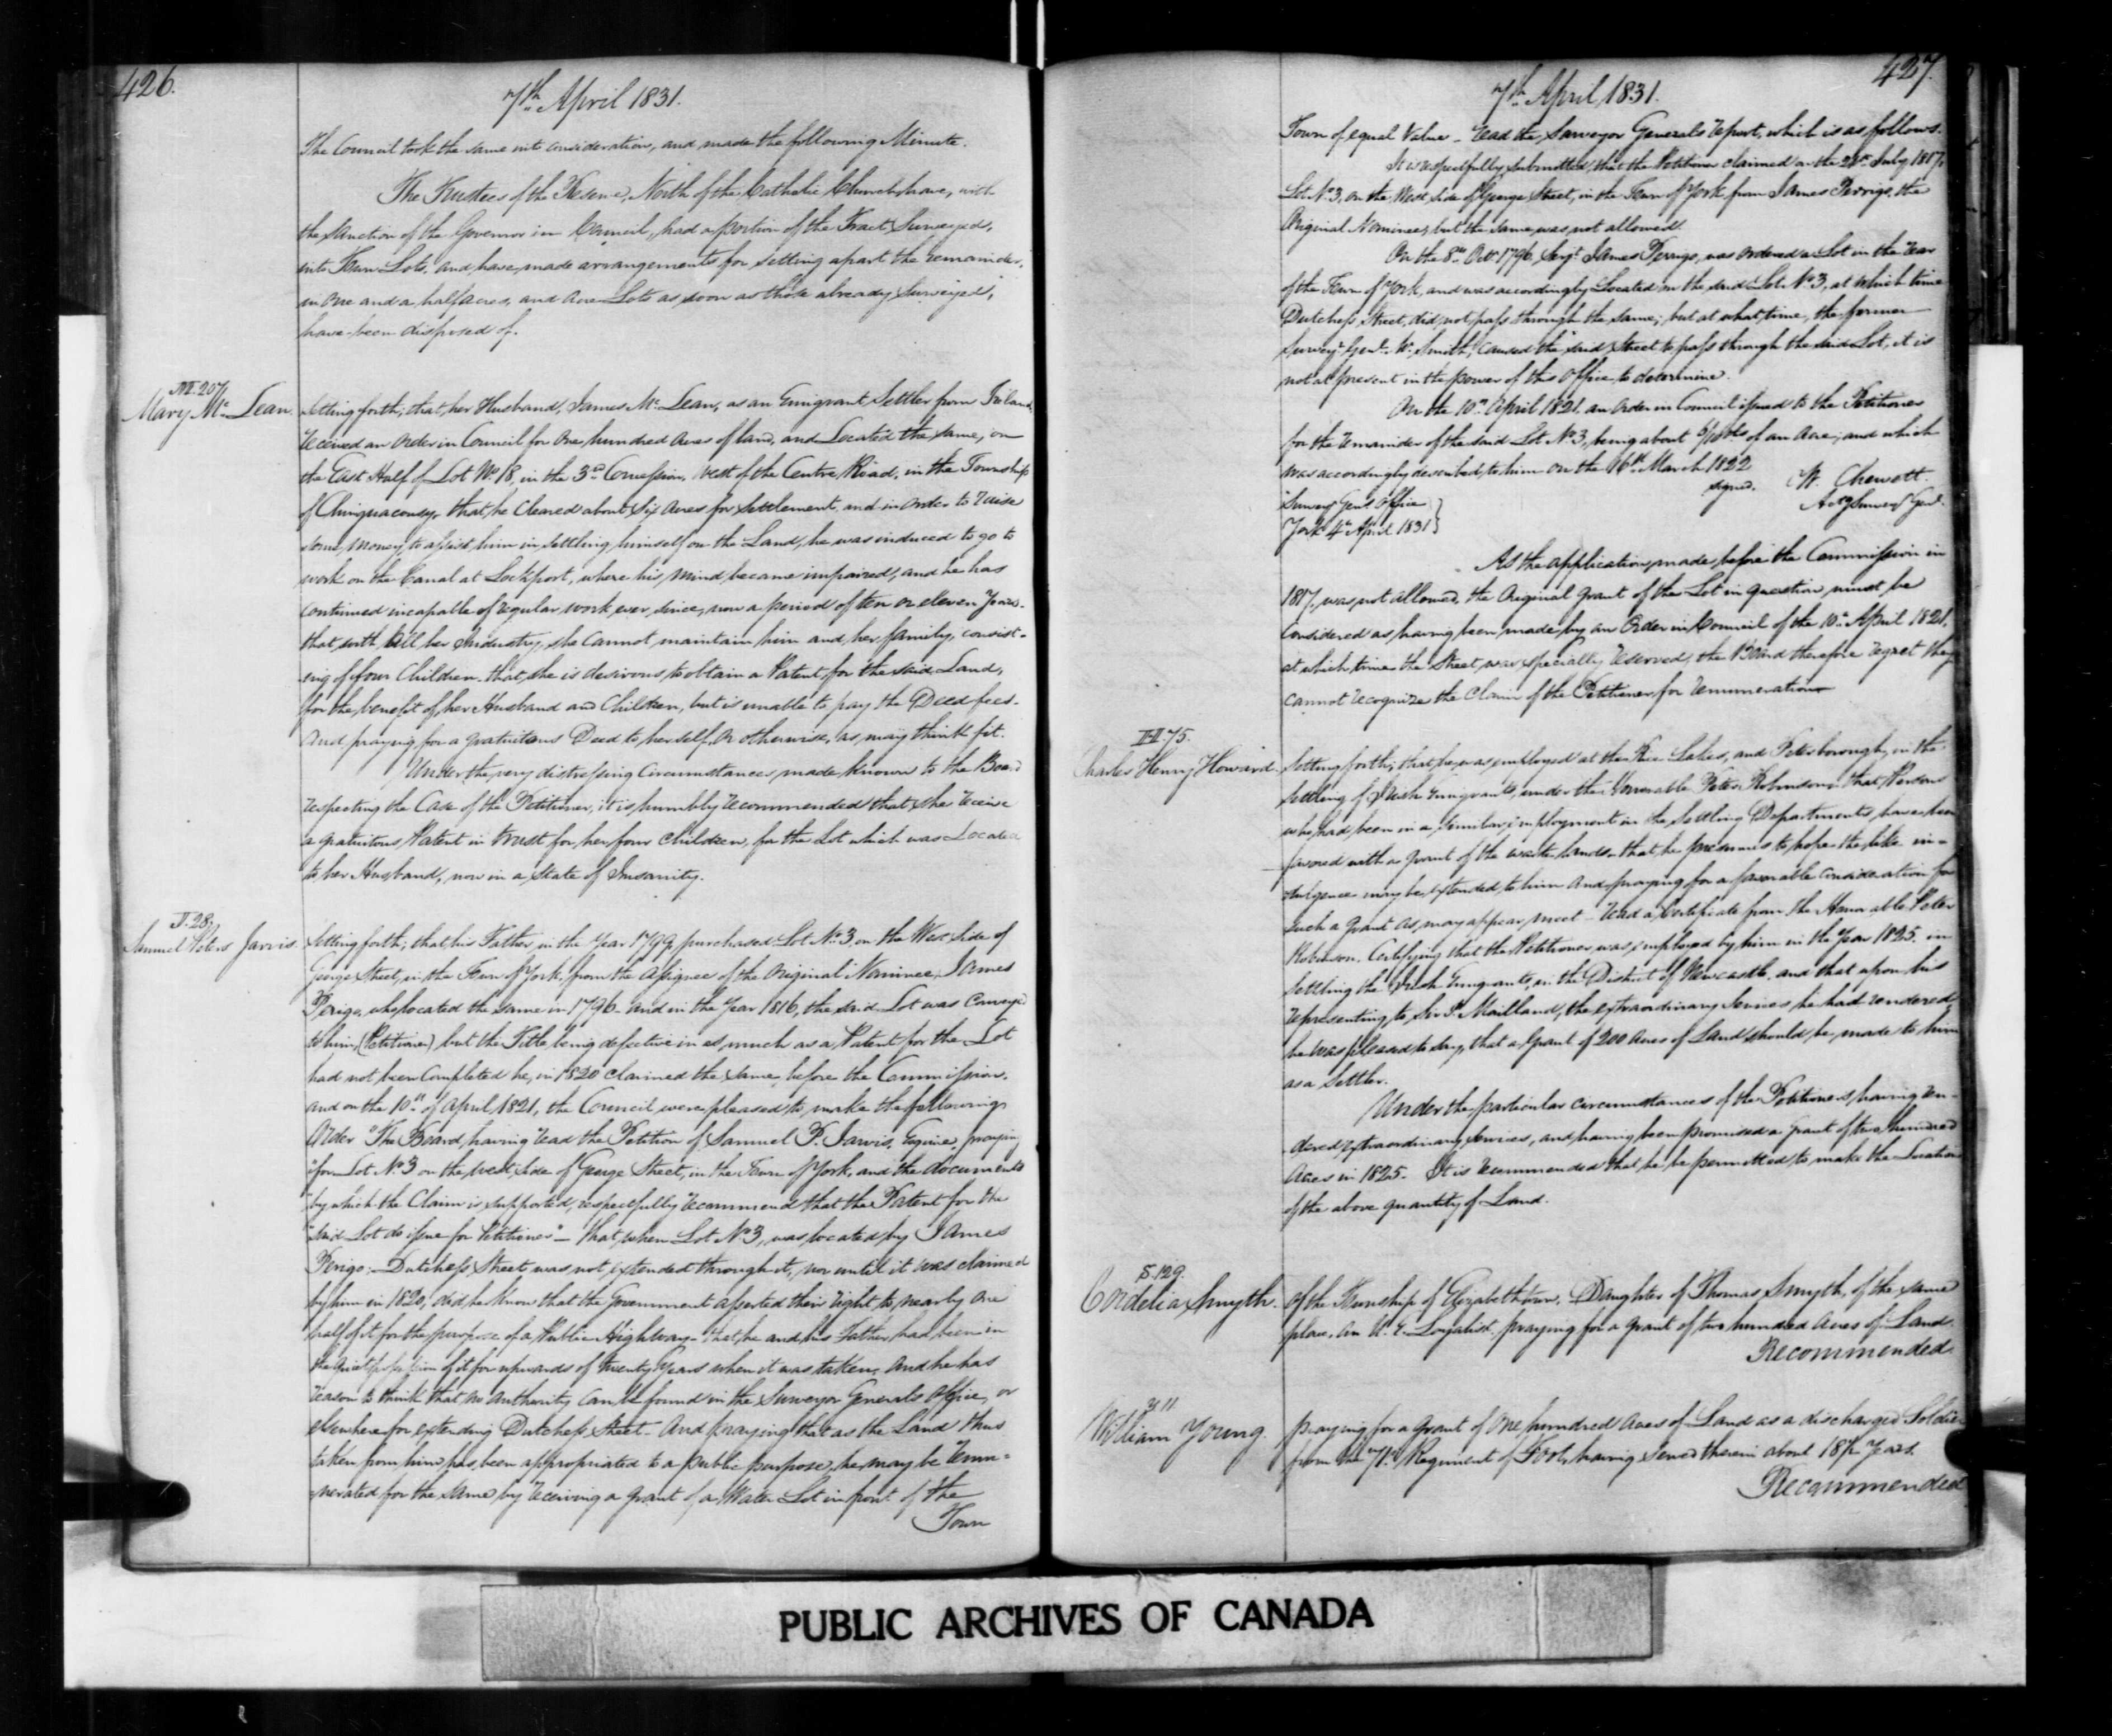 426.
7th April 1831.
The Council took the same into consideration, and made the following Minute.
The Trustees of the Reserve, North of the Catholic Church have, with
the sanction of the Governor in Council, had a portion of the Tract Surveyed,
into Town Lots, and have made arrangements for setting apart the remainder,
in One and a half acres, and Acre Lots as soon as those already Surveyed,
have been disposed of.
M. 207
Mary Mc Lean.
Setting forth; that, her Husband, James Mc Lean, as an Emigrant Settler from Ireland,
received an Order in Council for One hundred Acres of land, and Located the same, on
the East Half of Lot No. 18, in the 3rd Concession, West of the Centre Road, in the Township
of Chinguacousy, that, he Cleared about Six Acres for Settlement, and in order to raise
some Money, to assist him in settling himself on the Land, he was induced to go to
work on the Canal at Lockport, where his mind became impaired, and he has
continued incapable of regular work ever since, now a period of ten or eleven Years.
that, with all her Industry, she cannot maintain him and her family, consist-
ing of four Children. that, she is desirous to obtain a Patent for the said Land,
for the benefit of her Husband and Children, but is unable to pay the Deed fees.
And praying for a gratuitous Deed to herself, or otherwise, as may think fit.
Under the very distressing Circumstances made known to the Board
respecting the Case of the Petitioner, it is humbly recommended that she receive
a gratuitous Patent in trust for her four Children, for the Lot which was Located
to her Husband, now in a state of Insanity.
J. 28,
Samuel Peters Jarvis.
Setting forth; that, his Father, in the Year 1799, purchased Lot No. 3, on the West side of
George Street, in the Town of York, from the Assignee of the Original Nominee, James
Perigo, who located the same in 1796. and in the Year 1816, the said Lot was Conveyed
to him, (Petitioner) but the Title being defective in as much as a Patent for the Lot
had not been Completed he, in 1820 claimed the same before the Commission.
and on the 10th of April 1821, the Council were pleased to make the following
Order "The Board having read the Petition of Samuel P. Jarvis, Esquire, praying
"for Lot No. 3 on the West side of George Street, in the Town of York, and the documents
"by which the Claim is supported, respectfully recommend that the Patent for the
"said Lot do issue for Petitioner" - That, when Lot No. 3, was located by James
Perigo, Dutchess Street was not extended through it, nor until it was claimed
by him in 1820, did he know that the Government asserted their right to nearly one
half of it for the purpose of a Public Highway - that, he and his Father had been in
the quiet possession of it for upwards of twenty Years when it was taken, and he has
reason to think that no authority can be found in the Surveyor Generals Office, or
elsewhere for extending Dutchess Street - And praying that as the Land thus
taken from him has been appropriated to a public purpose, he may be remu=
nerated for the same by receiving a grant of a Water Lot in front of the
Town
427.
7th April 1831.
Town of equal Value - Read the Surveyor Generals report, which is as follows.
It is respectfully submitted, that the Petitioner claimed on the July 1817,
Lot No. 3, on the West side of George Street, in the Town of York, from James Perrigo, the
Original Nominee, but the same was not allowed.
On the 8th Octr. 1796, Serjt. James Perrigo, was ordered a Lot in the rear
of the Town of York, and was accordingly Located on the said Lot No. 3, at which time
Dutchess Street, did not pass through the same; but at what time, the former
Survey. Genl. Mr. Smith, caused the said Street to pass through the said Lot, it is
not at present in the power of this Office to determine.
On the 10th April 1821. an Order in Council issued to the Petitioner
for the remainder of the said Lot No. 3, being about 6/10ths of an Acre; and which
was accordingly described to him on the 16th March 1822
Signed. W. Chewett.
Actg Survey Genl.
Survey Genl. Office
York 4th April 1831
As the application, made before the Commission in
1817, was not allowed, the Original grant of the Lot in question must be
considered as having been made, by an Order in Council of the 10th April 1821,
at which time the Street was specially reserved, the Board therefore regret they
cannot recognize the Claim of the Petitioner for remuneration
H. 75.
Charles Henry Howard.
Setting forth; that, he was employed at the Rice Lakes, and Peterborough, in the
settling of Irish Emigrants, under the Honorable Peter Robinson, that, Persons
who had been in a similar employment in the Settling Departments, have been
favored with a grant of the waste lands, that, he presumes to hope the like in-
dulgence may be extended to him And praying for a favorable consideration for
such a Grant as may appear meet - Read a Certificate from the Honorable Peter
Robinson, Certifying that the Petitioner was employed by him in the Year 1825. in
settling the Irish Emigrants, in the District of Newcastle, and that upon his
representing to Sir P. Maitland, the extraordinary Services he had rendered,
he was pleased to say, that a Grant of 200 Acres of Land should be made to him
as a Settler.
Under the particular circumstances of the Petitioners having ren-
dered extraordinary Services, and having been promised a Grant of two hundred
Acres in 1825. It is recommended that, he be permitted to make the Location
of the above quantity of Land.
S. 129.
Cordelia Smyth.
Of the Township of Elizabethtown, Daughter of Thomas Smyth, of the same
place, an U. E. Loyalist, praying for a grant of two hundred Acres of Land.
Recommended.
Y 11
William Young.
praying for a Grant of One hundred Acres of Land as a discharged Soldier
from the Regiment of Foot, having served therein about 18½ Years.
Recommended
PUBLIC ARCHIVES OF CANADA